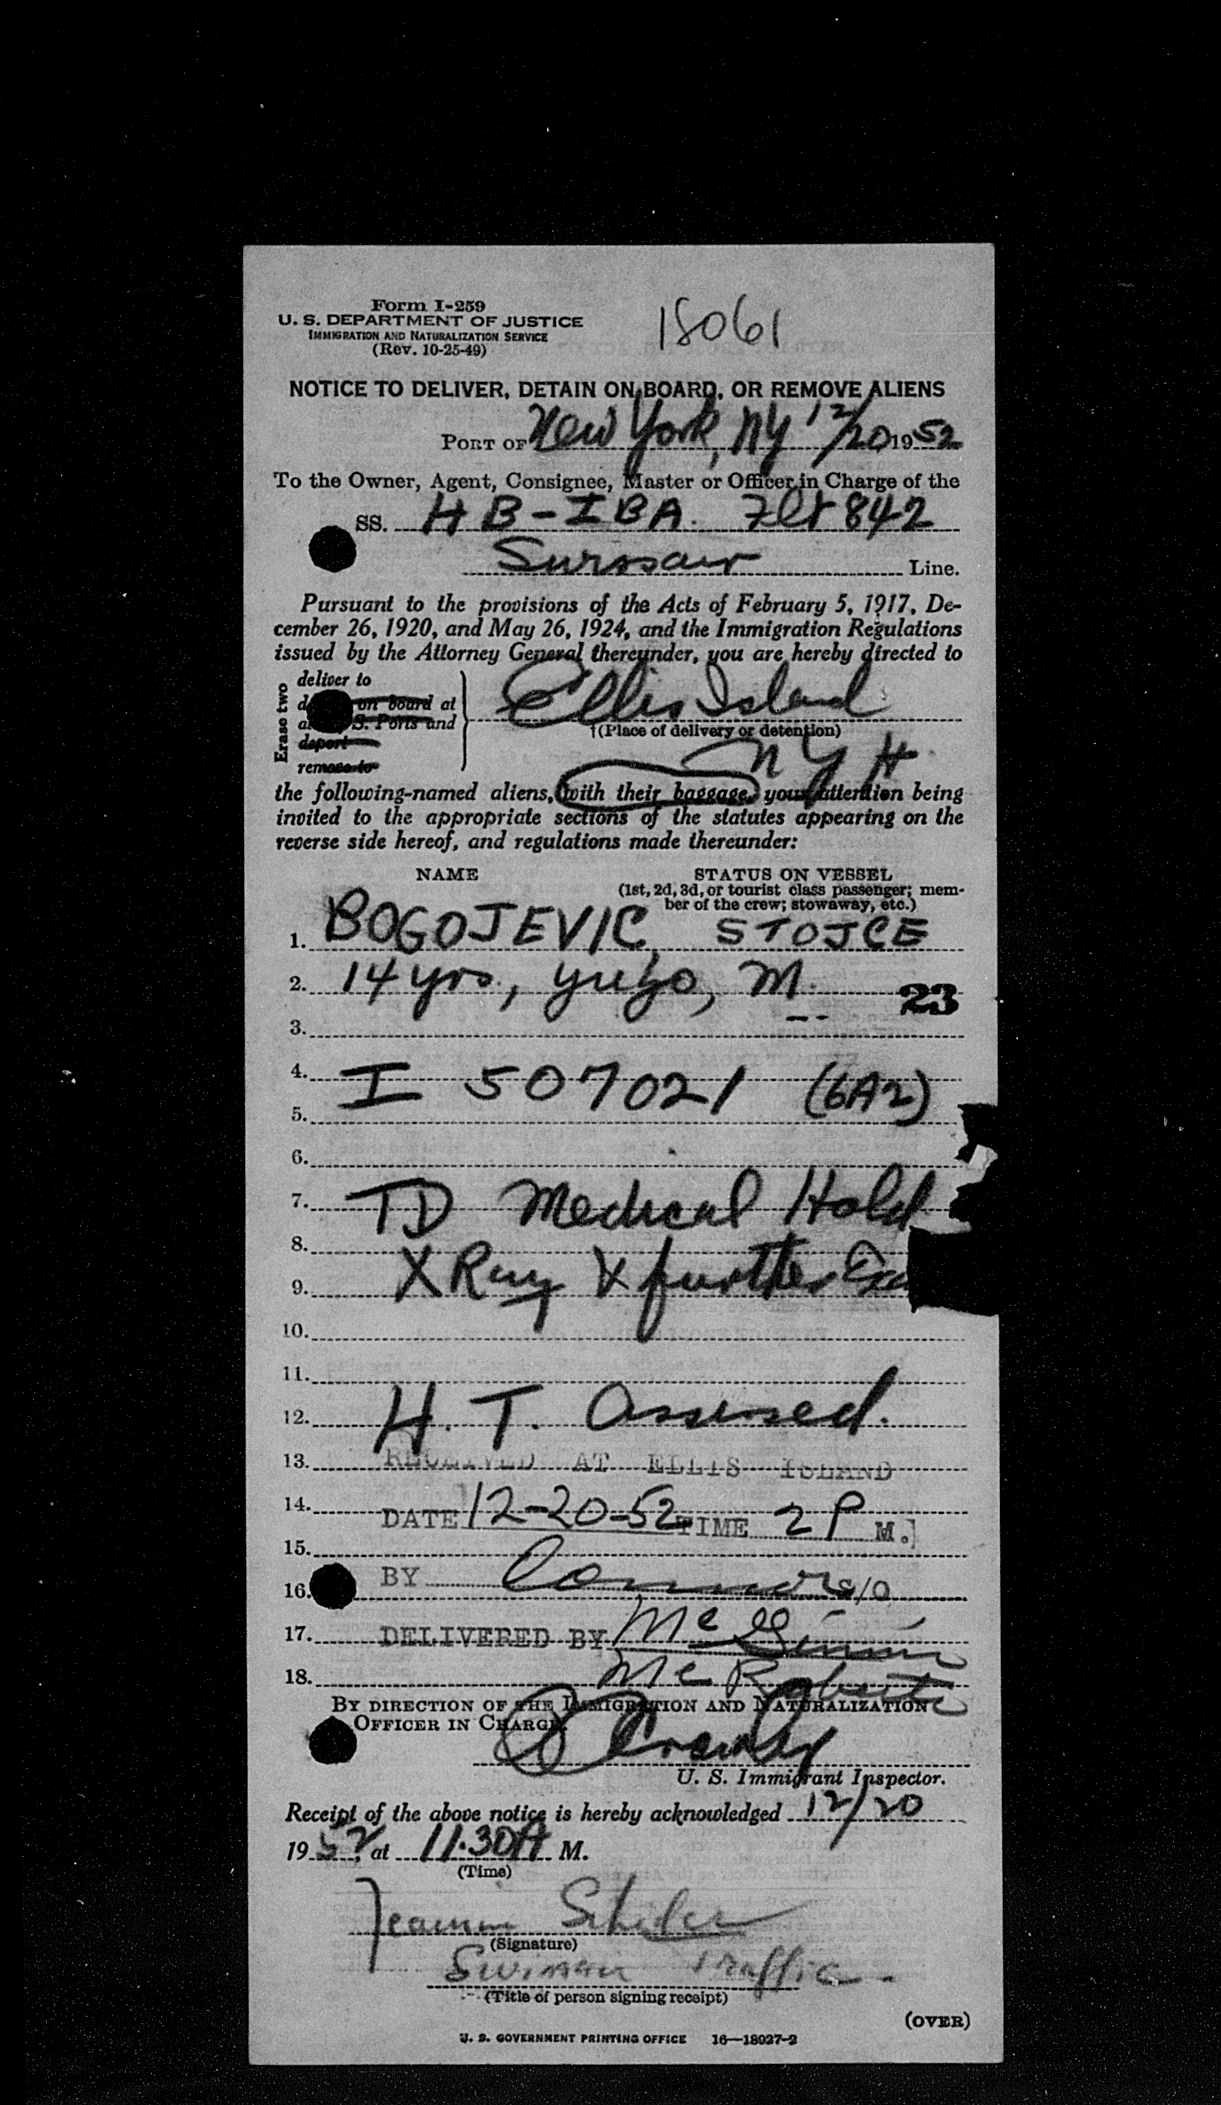 Form I-259
U. S. DEPARTMENT OF JUSTICE
IMMIGRATION AND NATURALIZATION SERVICE
(Rev. 10-25-49)
18061
NOTICE TO DELIVER, DETAIN ON BOARD, OR REMOVE ALIENS
PORT OF New York, NY 12/20 1952
To the Owner, Agent, Consignee, Master or Officer in Charge of the
SS. HB-IBA. Flt 842
Line.
Pursuant to the provisions of the Acts of February 5, 1917, De-
cember 26, 1920, and May 26, 1924, and the Immigration Regulations
issued by the Attorney General thereunder, you are hereby directed to
Erase two
deliver to
on board at
S. Ports and
deport
remove to
Ellis Island
†(Place of delivery or detention)
N Y H
the following-named aliens, with their baggage, your attention being
invited to the appropriate sections of the statutes appearing on the
reverse side hereof, and regulations made thereunder:
NAME STATUS ON VESSEL
(1st, 2d, 3d, or tourist class passenger; mem-
ber of the crew; stowaway, etc.)
1. BOGOJEVIC, STOJCE
2. 14 yrs, yugo, M. 23
3.
4. I 507021 (6A2)
5.
6.
7. TD Medical Hold
8.
9. X Ray & further
10.
11.
12. H. T. Assessed.
13. RECEIVED AT ELLIS ISLAND
14. DATE 12-20-52 TIME 2 P M.
15.
16. BY Connor S/O
17. DELIVERED BY McGinnis
18. McRoberts
BY DIRECTION OF THE IMMIGRATION AND NATURALIZATION
OFFICER IN CHARGE.
U. S. Immigrant Inspector.
Receipt of the above notice is hereby acknowledged 12/20
1952, at 11.30 A M.
(Time)
(Signature)
Traffic.
(Title of person signing receipt)
(OVER)
U. S. GOVERNMENT PRINTING OFFICE 16—18027-2